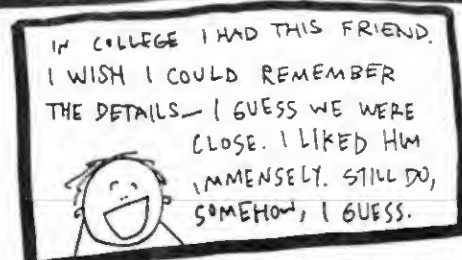 IN COLLEGE I HAD THIS FRIEND.
I WISH I COULD REMEMBER
THE DETAILS— I GUESS WE WERE
CLOSE. I LIKED HIM
IMMENSELY. STILL DO,
SOMEHOW, I GUESS.